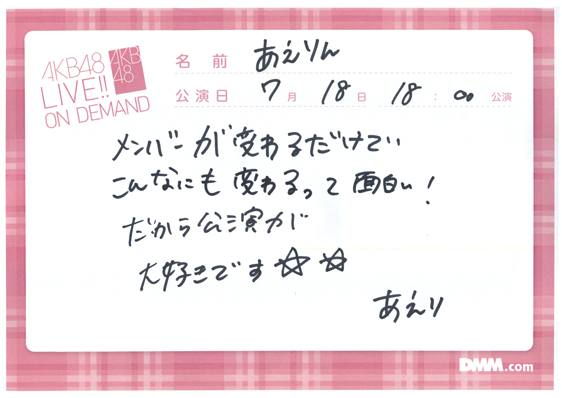 AKB48
LIVE!!
ON DEMAND
AKB
48
名前 あえりん
公演日 7月 18日 18:00 公演
メンバーが変わるだけでい
こんなにも変わるって面白い!
だから公演が
大好きです☆☆
あえり
DMM.com